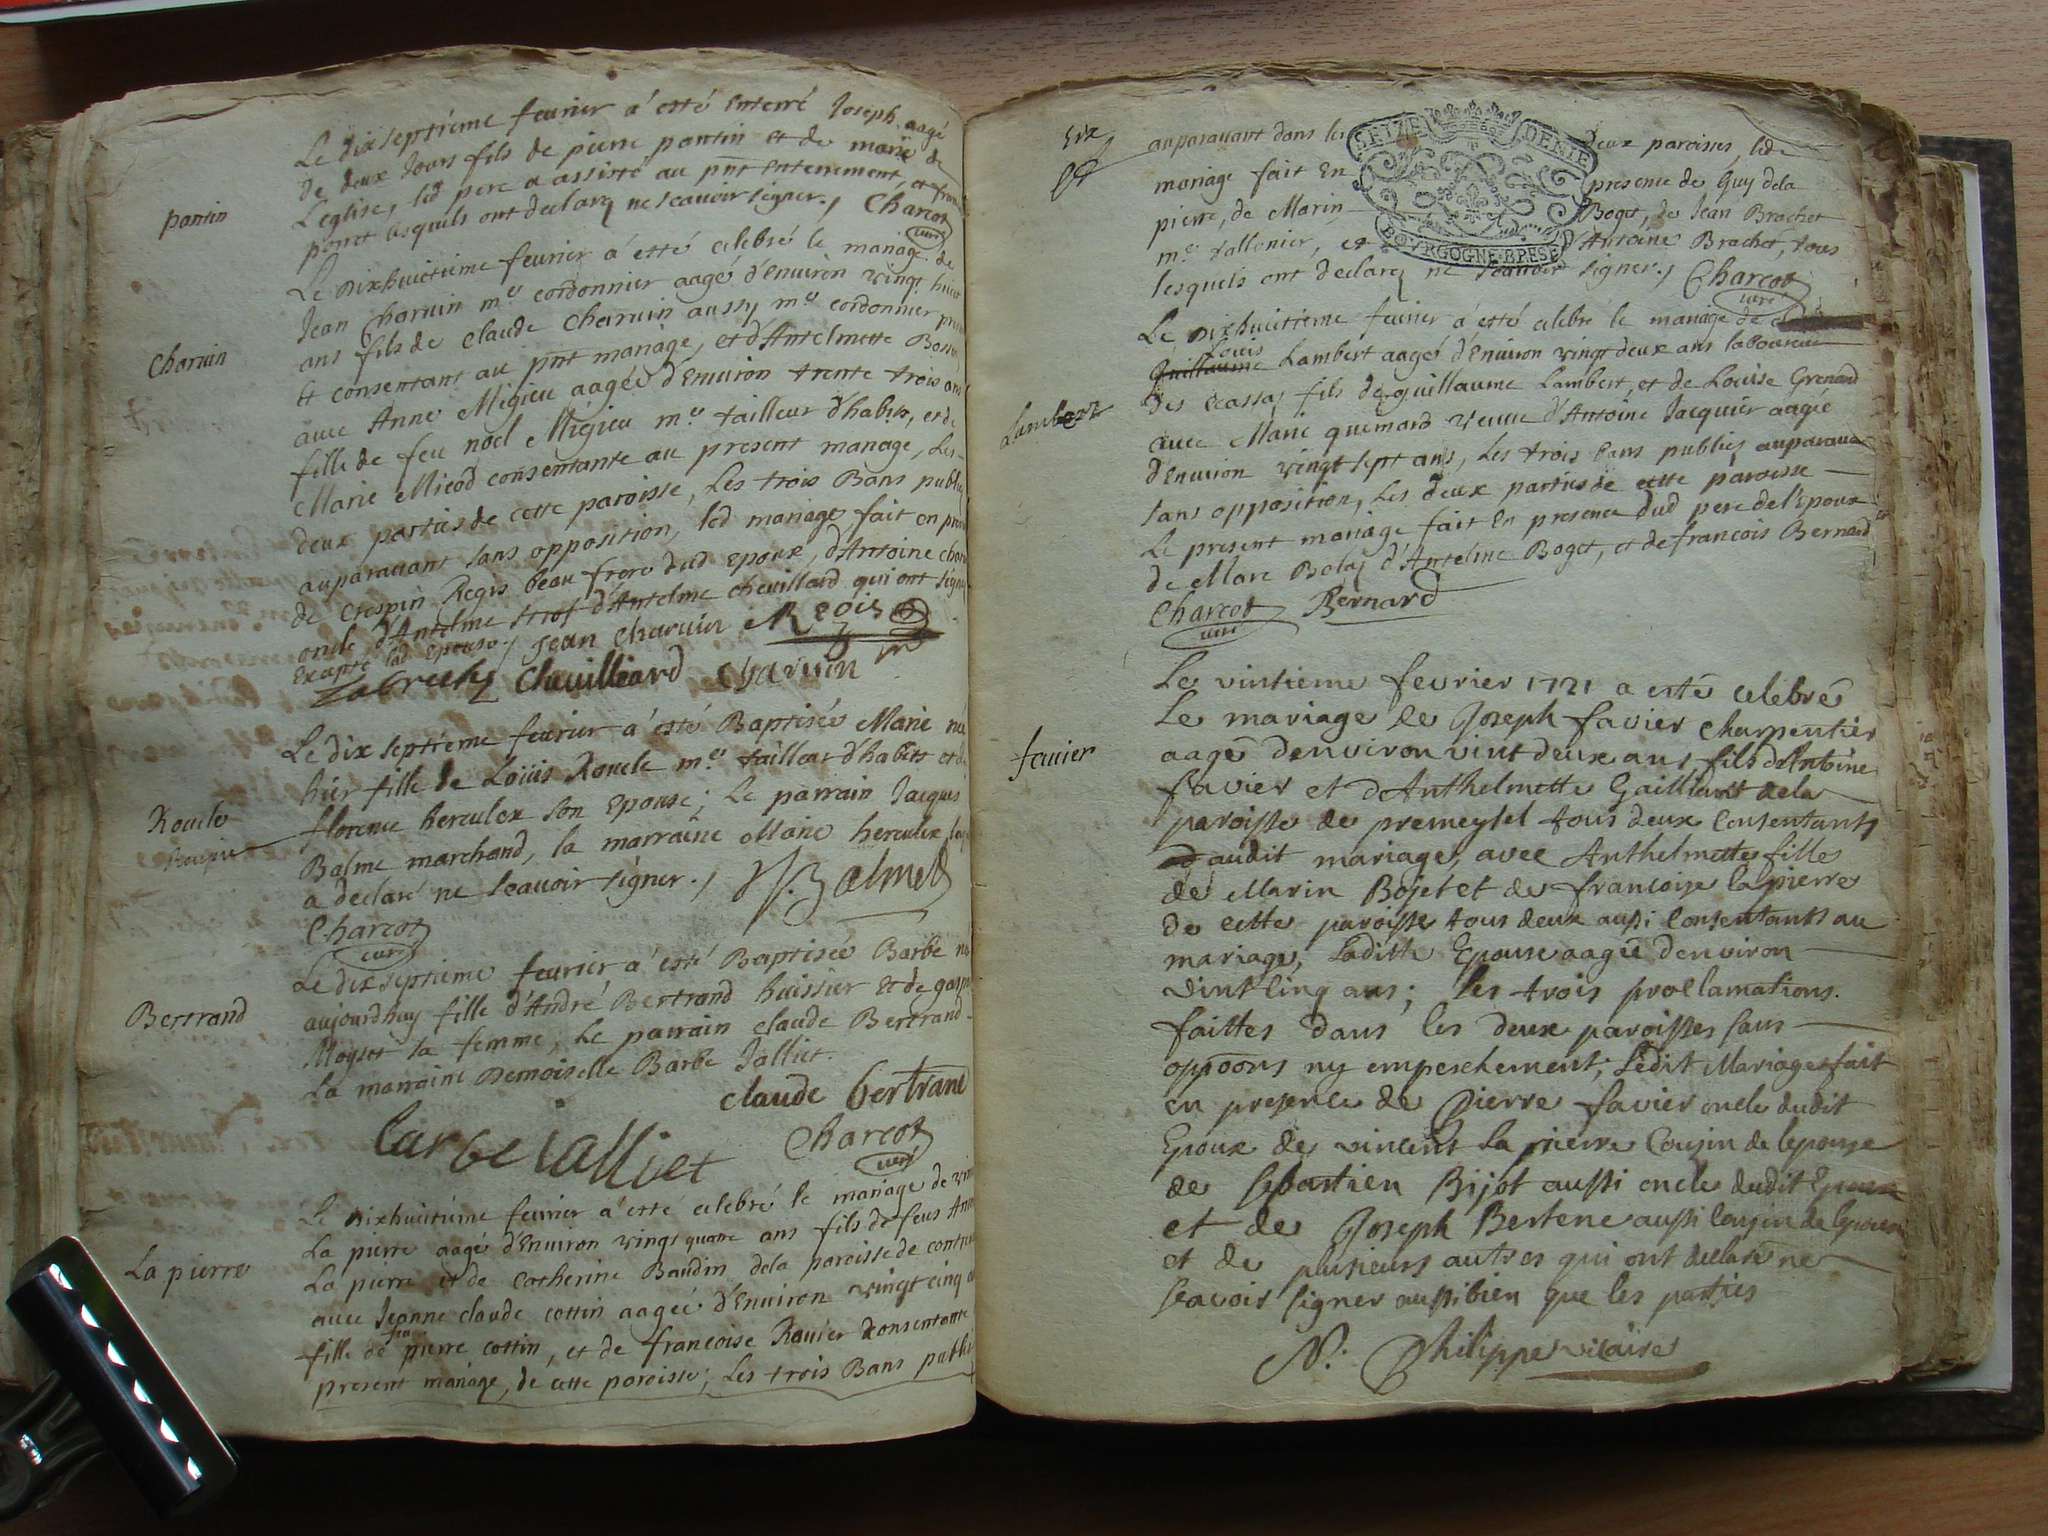 pontin
Le dix septieme feurier a esté enterré Joseph aagé
de deux Jours fils de pierre pontin et de marie de
Leglise, led pere a assisté au pnt enterrement, et
ponet lesquels ont declaré ne scauoir signer., Charcot
curé
Charuin
Le dixhuictieme feurier a esté celebré le mariage de
Jean Charuin me cordonnier aagé d'Enuiron vingt huict
ans fils de Claude Charuin aussy me cordonnier
et consentant au pnt mariage, et d'Antelmette
auec Anne Migieu aagée d'Enuiron trente trois ans
fille de feu noel Migieu me tailleur d'habits, et de
Marie Micod consentante au present mariage, Les
deux parties de cette paroisse, Les trois Bans
auparauant sans opposition, led mariage fait en
de Crespin Regis beau frere dud Epoux, d'Antoine
oncle d'Antelme d'Antelme Cheuillard qui ont
Excepté lad Epouse., Jean Charuin Regis
Chauilliard Charuin
Rouele
Le dix septieme feurier a esté Baptisée Marie née
hier fille de Loüis Rouele me tailleur d'habits et de
florence herculex son Epouse; Le parrain Jacques
Balme marchand, la marraine Marie herculex
a declaré ne scauoir signer., Balme
Charcot
curé
Bertrand
Le dix septieme feurier a esté Baptisée Barbe
aujourdhuy fille d'André Bertrand huissier et de
Moyset sa femme, Le parrain Claude Bertrand
La marraine Demoiselle Barbe Jalliet.
claude bertrand
barbe ialliet Charcot
curé
La pierre
Le dixhuictieme feurier a esté celebré le mariage de
La pierre aagé d'Enuiron vingt quatre ans fils de feus
La pierre et de Catherine Baudin dela paroisse de
auec Jeanne claude cottin aagée d'Enuiron vingt cinq
fille de feu pierre cottin, et de francoise Rauier consentante
present mariage, de cette paroisse; Les trois Bans
auparauant dans les deux paroisses, led
SEIZE DENIE
BOVRGOGNE.BPESE
mariage fait En presence de Guy dela
pierre, de Marin Boget, de Jean Brachet
me tallonier, et d'Antoine Brachet, tous
lesquels ont declaré ne scauoir signer., Charcot
curé
Lambert
Le dixhuictieme feurier a esté celebré le mariage de
Louis
Guillaume Lambert aagé d'Enuiron vingt deux ans laboureur
des fils de guillaume Lambert, et de Louise Grenard
auec Marie quemard veuue d'Antoine Jacquier aagée
d'Enuiron vingt sept ans, Les trois bans publiés auparauant
sans opposition, Les deux parties de cette paroisse
Le present mariage fait En presence dud pere de l'Epoux
de Marc d'Antelme Boget, et de francois Bernard
Charcot Bernard
curé
fauier
Le vintieme fevrier 1721 a esté celebré
Le mariage de Joseph favier Charpentier
aagé denviron vint deux ans fils dAntoine
favier et dAnthelmette Gaillard dela
paroisse de premeysel tous deux Consentants
audit mariage, avec Anthelmette fille
de Marin Bojet et de francoise la pierre
de cette paroisse tous deux aussi Consentants au
mariage, Laditte Epouse aagée denviron
vint cinq ans; les trois proclamations.
faittes dans les deux paroisses sans
oppoons ny empeschement; Ledit Mariage fait
en presence de Pierre favier oncle dudit
Epoux de vincent la pierre Cousin de lepouse
de Sebastien Bijot aussi oncle dudit Epoux
et de Joseph Bertene aussi Cousin de lepouse
et de plusieurs autres qui ont declaré ne
scavoir signer aussi bien que les parties
N. Philippe vicaire